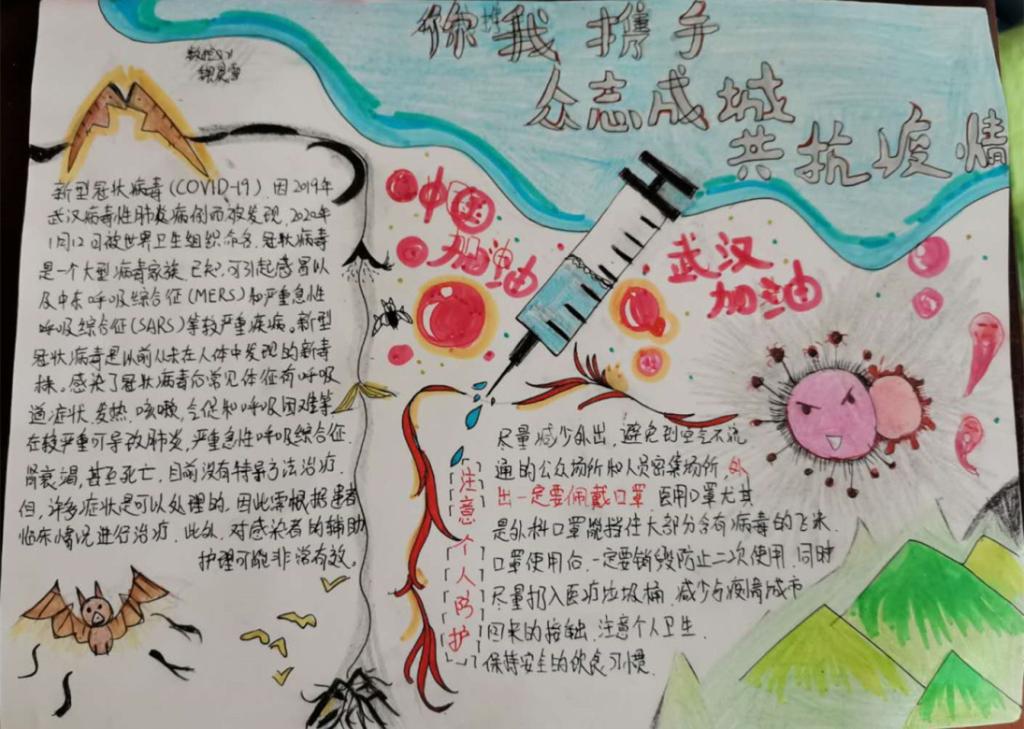 你我携手
众志成城
共抗疫情
新型冠状病毒(COVID-19)因2019年
武汉病毒性肺炎病例而被发现,2020年
1月12日被世界卫生组织命名.冠状病毒
是一个大型病毒家族,已知可引起感冒以
及中东呼吸综合征(MERS)和严重急性
呼吸综合征(SARS)等较严重疾病。新型
冠状病毒是以前从未在人体中发现的新毒
株。感染了冠状病毒后常见体征有呼吸
道症状、发热、咳嗽、气促和呼吸困难等.
在较严重可导致肺炎,严重急性呼吸综合征.
肾衰竭,甚至死亡,目前没有特异方法治疗.
但,许多症状是可以处理的,因此需根据患者
临床情况进行治疗.此外,对感染者的辅助
护理可能非常有效。
中国
加油
武汉
加油
注意个人防护
尽量减少外出,避免到空气不流
通的公众场所和人员密集场所,外
出一定要佩戴口罩,医用口罩尤其
是外科口罩能挡住大部分含有病毒的飞沫.
口罩使用后,一定要销毁防止二次使用,同时
尽量扔入医疗垃圾桶,减少与疫情城市
回来的接触,注意个人卫生.
保持安全的饮食习惯.